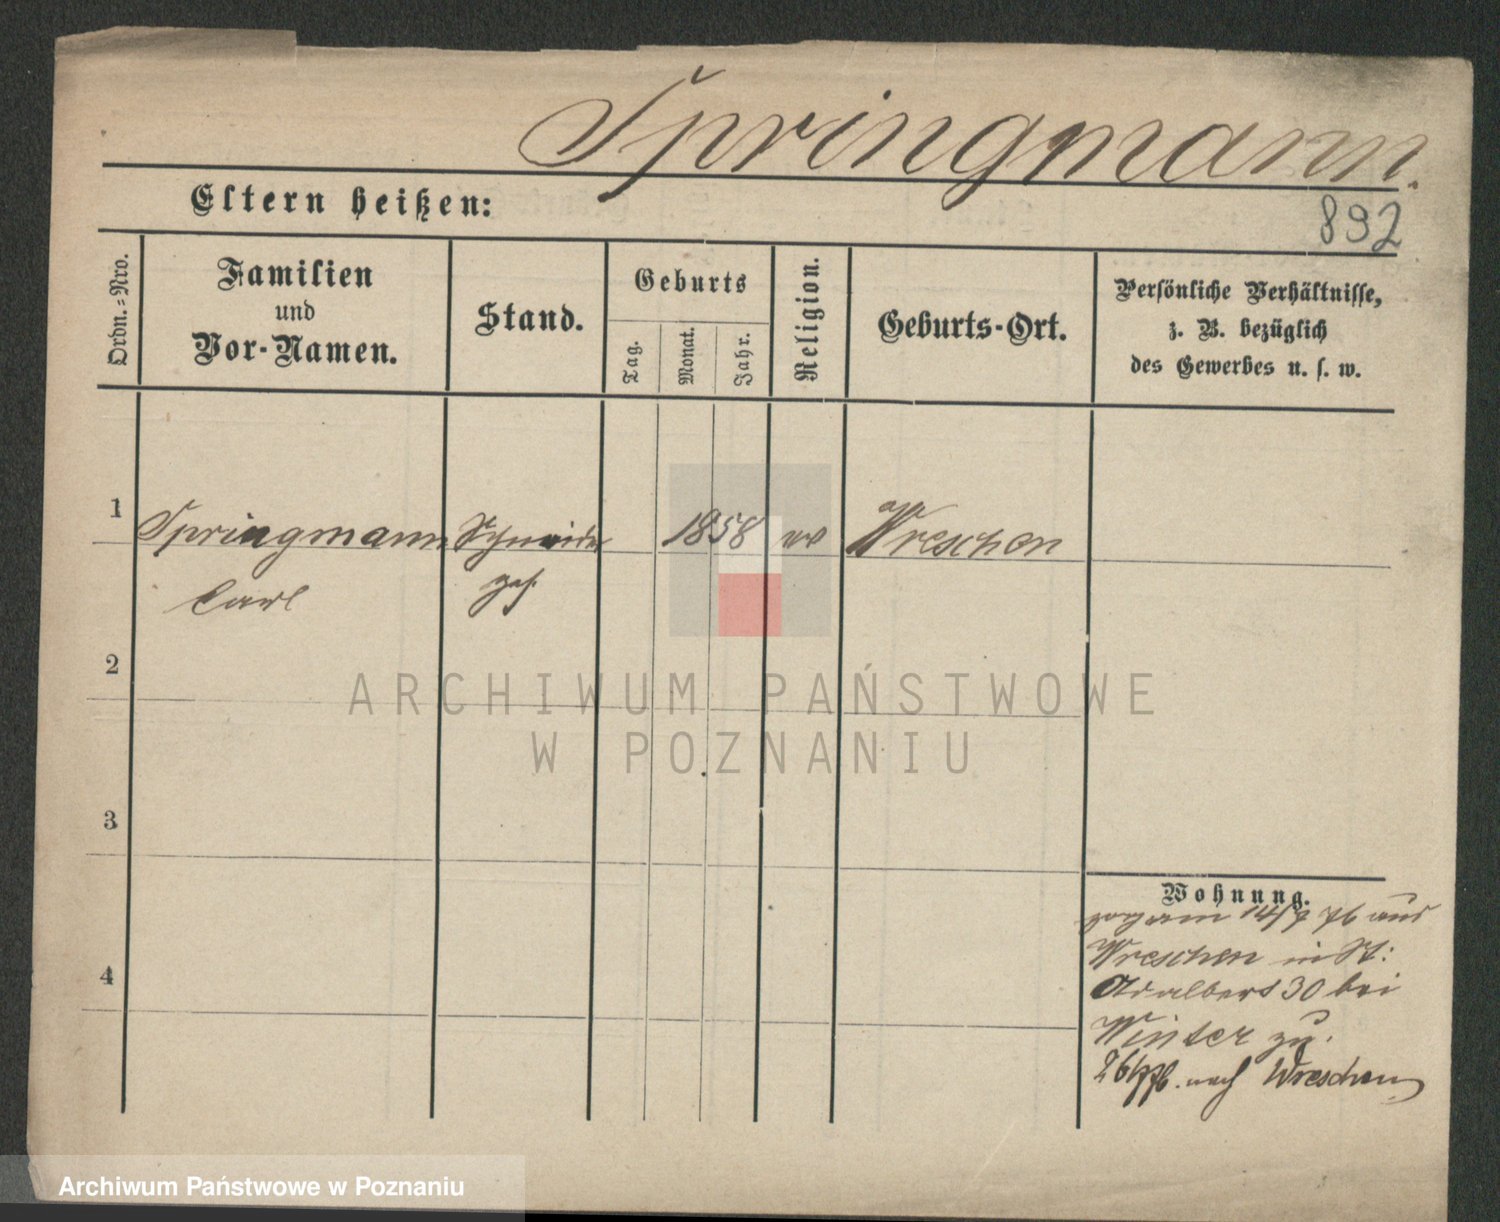 Springmann.
Eltern heißen:
892
Ordn.=Nro.
Familien
und
Vor-Namen.
Stand.
Geburts
Tag.
Monat.
Jahr.
Religion.
Geburts-Ort.
Persönliche Verhältnisse,
z. B. bezüglich
des Gewerbes u. s. w.
1
Springmann
Schneider
1858
Wreschen
Carl
ges.
2
ARCHIWUM PAŃSTWOWE
W POZNANIU
3
Wohnung.
76 aus
Wreschen in St:
4
Adalbert 30 bei
Winter zu.
nach Wreschen
Archiwum Państwowe w Poznaniu